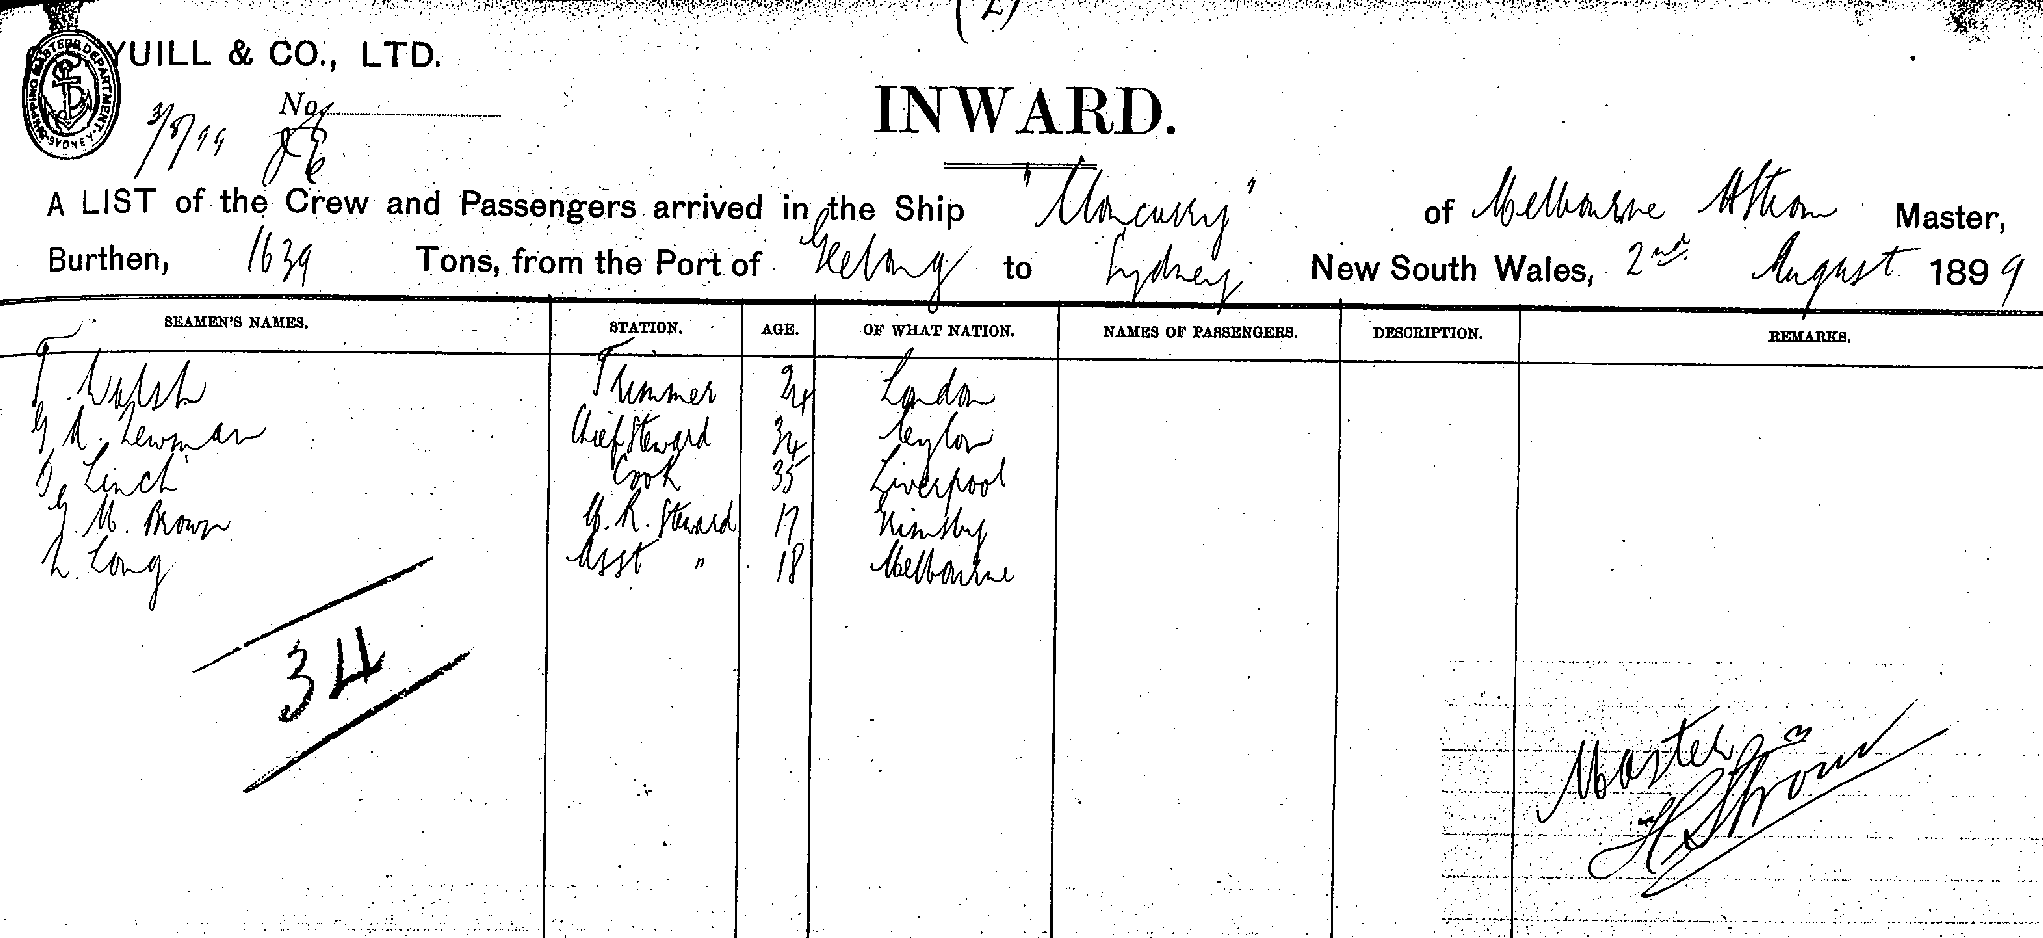 (2)
YUILL & CO., LTD.
SHIPPING MASTERS DEPARTMENT SYDNEY
No.
3/8/99
INWARD.
A LIST of the Crew and Passengers arrived in the Ship " " of Melbourne Master,
Burthen, 1639 Tons, from the Port of Geelong to Sydney New South Wales, 2nd August 1899
SEAMEN'S NAMES. STATION. AGE. OF WHAT NATION. NAMES OF PASSENGERS. DESCRIPTION. REMARKS.
T Walsh Trimmer 24 London
G A. Newman Chief Steward 34 Ceylon
Linch Cook 35 Liverpool
G. M. Brown Steward 17 Grimsby
L. Long Asst " 18 Melbourne
34
Master